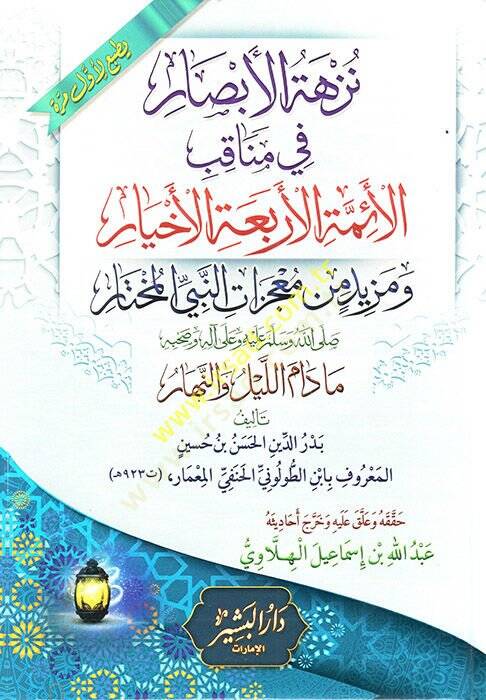 يطبع لأول مرة
نُزْهَةُ الأَبْصَارِ
فِي مَنَاقِبِ
الأَئِمَّةِ الأَرْبَعَةِ الأَخْيَارِ
وَمَزِيدٍ مِنْ مُعْجِزَاتِ النَّبِيِّ المُخْتَارِ
صَلَّى اللهُ وَسَلَّمَ عَلَيْهِ وَعَلَى آلِهِ وَصَحْبِهِ
مَا دَامَ اللَّيْلُ وَالنَّهَارُ
تَأْلِيفُ
بَدْرِ الدِّينِ الحَسَنُ بْنُ حُسَيْنٍ
المَعْرُوفِ بِابْنِ الطُّولُونِيِّ الحَنَفِيِّ المِعْمَارِ، (ت ٩٢٣هـ)
حَقَّقَهُ وَعَلَّقَ عَلَيْهِ وَخَرَّجَ أَحَادِيثَهُ
عَبْدُ اللهِ بْنِ إِسْمَاعِيلَ الهِلَاوِيُّ
دَارُ البَشِيرِ
الإمارات